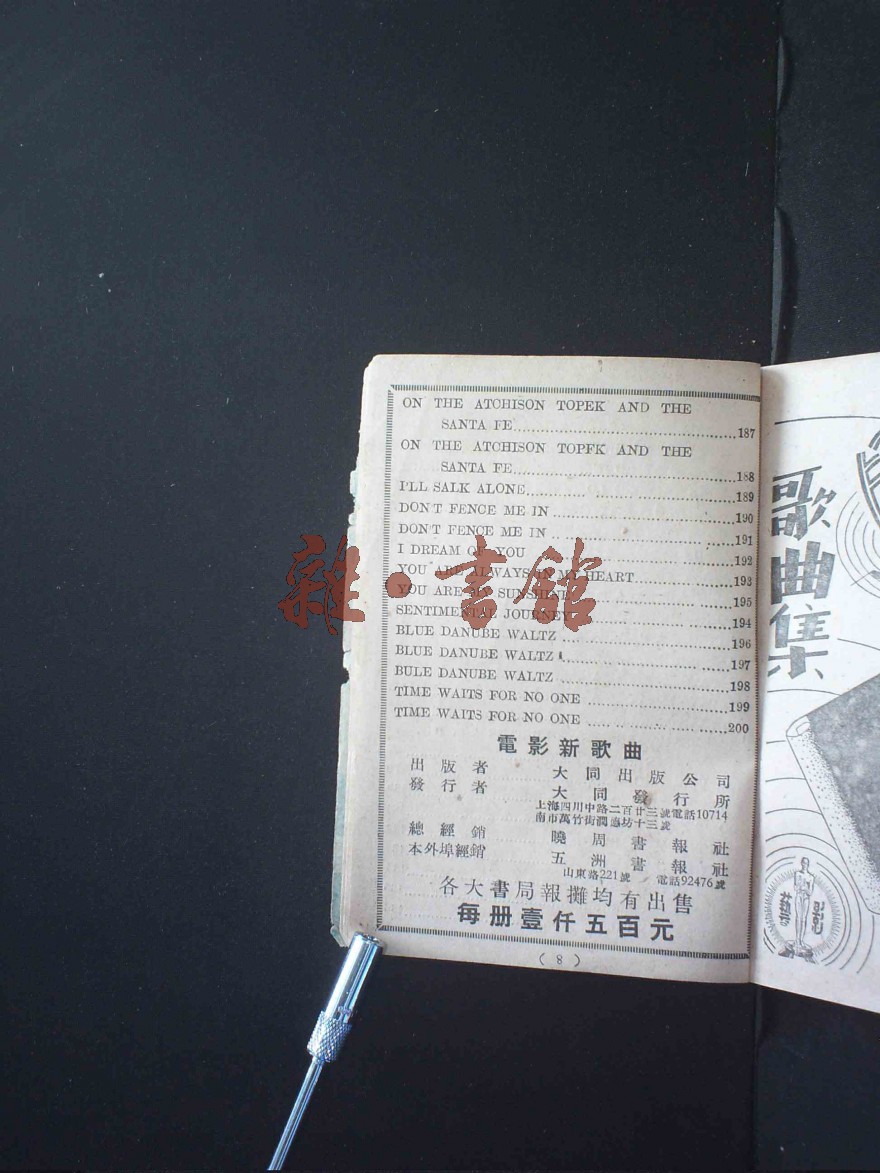 ON THE ATCHISON TOPEK AND THE
SANTA FE 187
ON THE ATCHISON TOPFK AND THE
SANTA FE 188
I'LL SALK ALONE 189
DON'T FENCE ME IN 190
DON'T FENCE ME IN 191
I DREAM OF YOU 192
YOU ARE ALWAYS IN MY HEART 193
YOU ARE MY SUNSHINE 195
SENTIMENTAL JOURNEY 194
BLUE DANUBE WALTZ 196
BLUE DANUBE WALTZ 197
BULE DANUBE WALTZ 198
TIME WAITS FOR NO ONE 199
TIME WAITS FOR NO ONE 200
電影新歌曲
出版者 大同出版公司
發行者 大同發行所
上海四川中路二百廿三號電話10714
南市萬竹街潤德坊十三號
總經銷 曉周書報社
本外埠經銷 五洲書報社
山東路221號 電話92476號
各大書局報攤均有出售
每册壹仟五百元
(8)
歌曲集
雜·書館